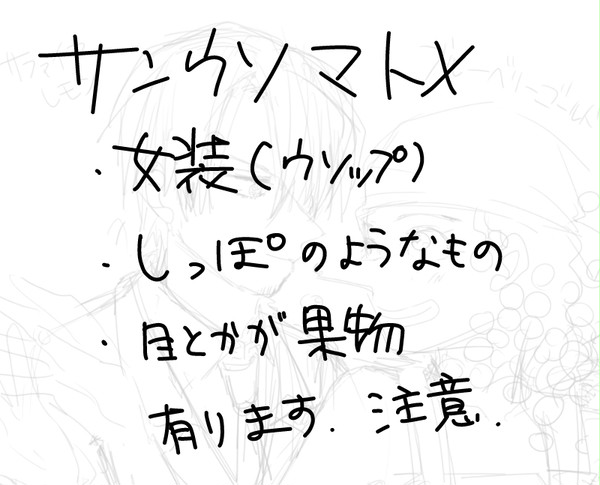 サンウソマトメ
・女装(ウソップ)
・しっぽ°のようなもの
・目とかが果物
有ります. 注意.